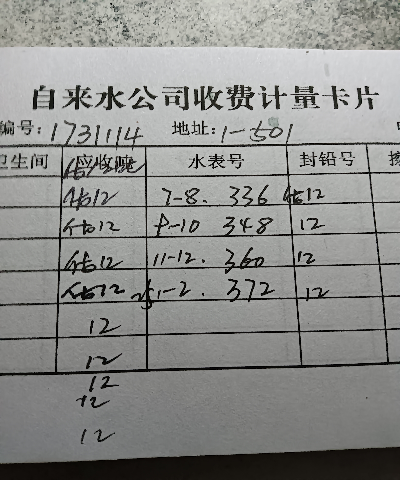 自来水公司收费计量卡片
编号: 1731114 地址: 1-501
卫生间 应收吨 水表号 封铅号
估12 7-8. 336 估12
估12 9-10 348 12
估12 11-12. 360 12
估12 25 1-2. 372 12
12
12
12
12
12